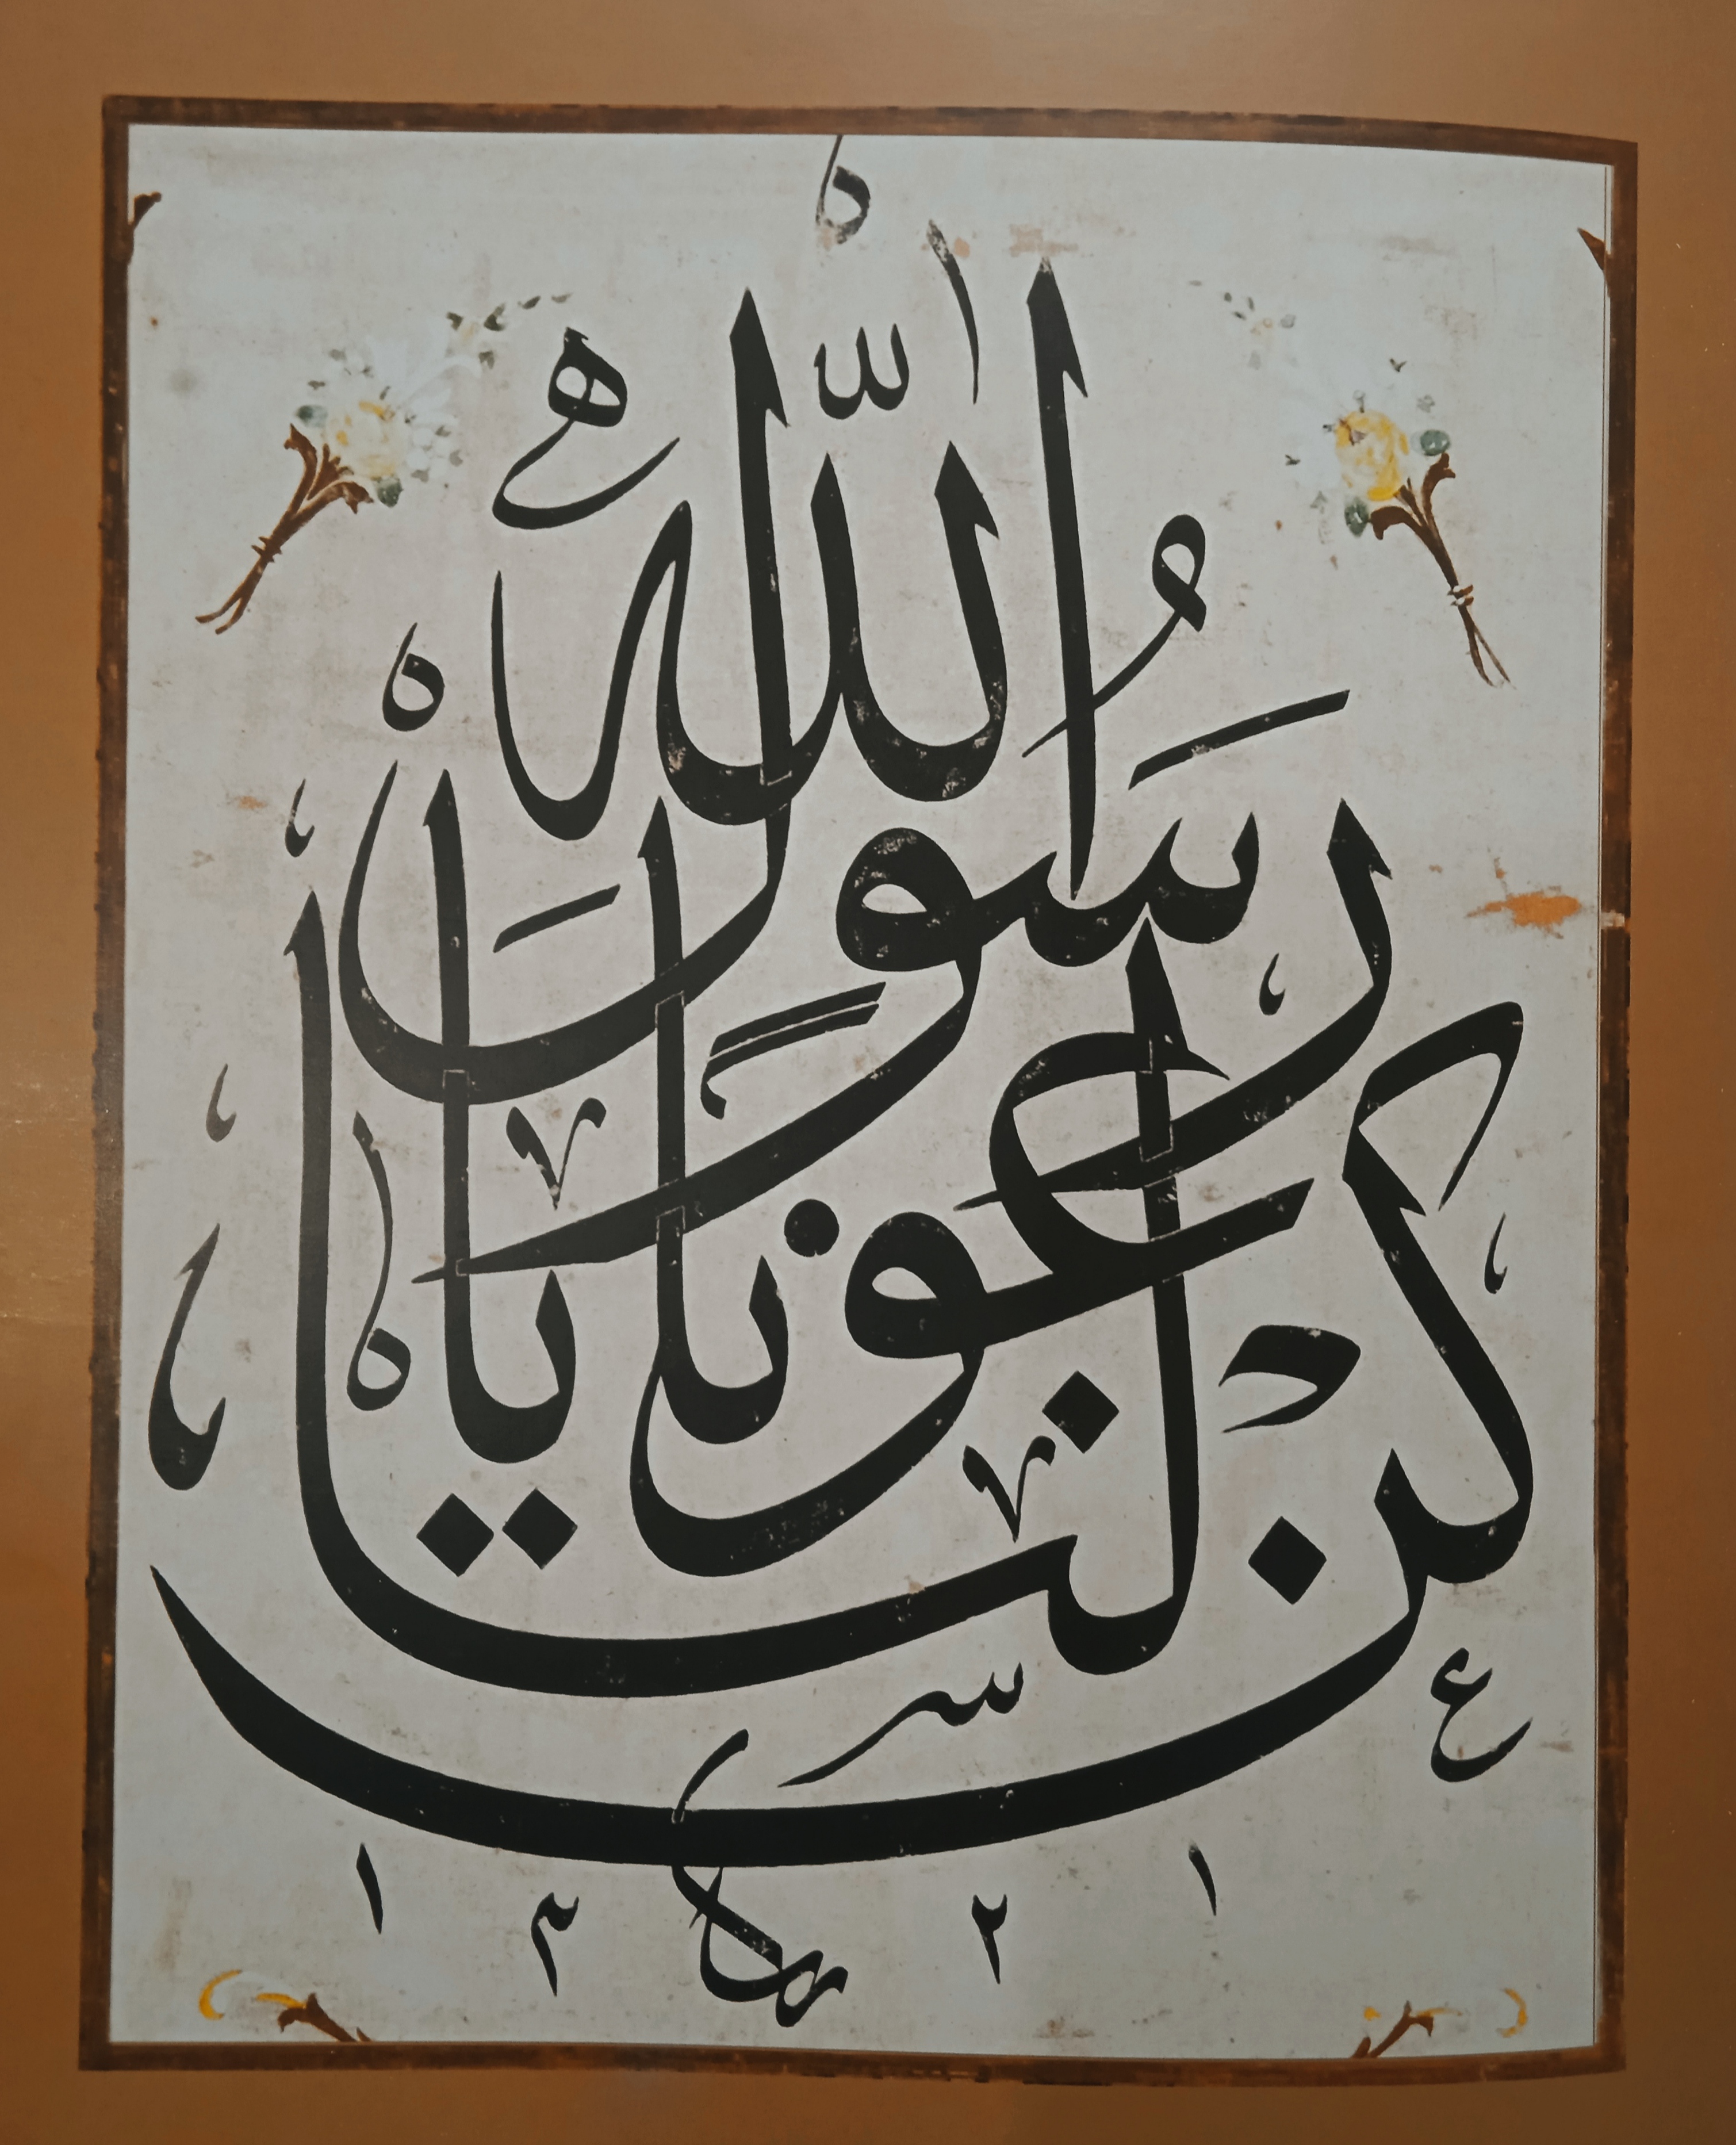 كن لنا عونا يا رسول الله
١٣٢١